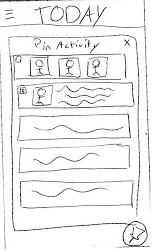 TODAY
Pin Activity X